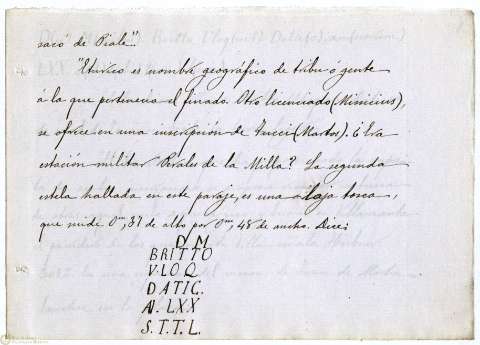 sacó de Piale"..
"Eturico es nombre geográfico de tribu ó gente
á la que pertenecia el finado. Otro licenciado (Minicius),
se ofrece en una inscripción de Tucci (Martos). ¿Era
estación militar Perales de la Milla? La segunda
estela hallada en este paraje, es una laja tosca,
que mide 0m,37 de alto por 0m,48 de ancho. Dice:
D M
BRITTO
V·LOQ
DATIC.
AN. LXX
S.T.T.L.